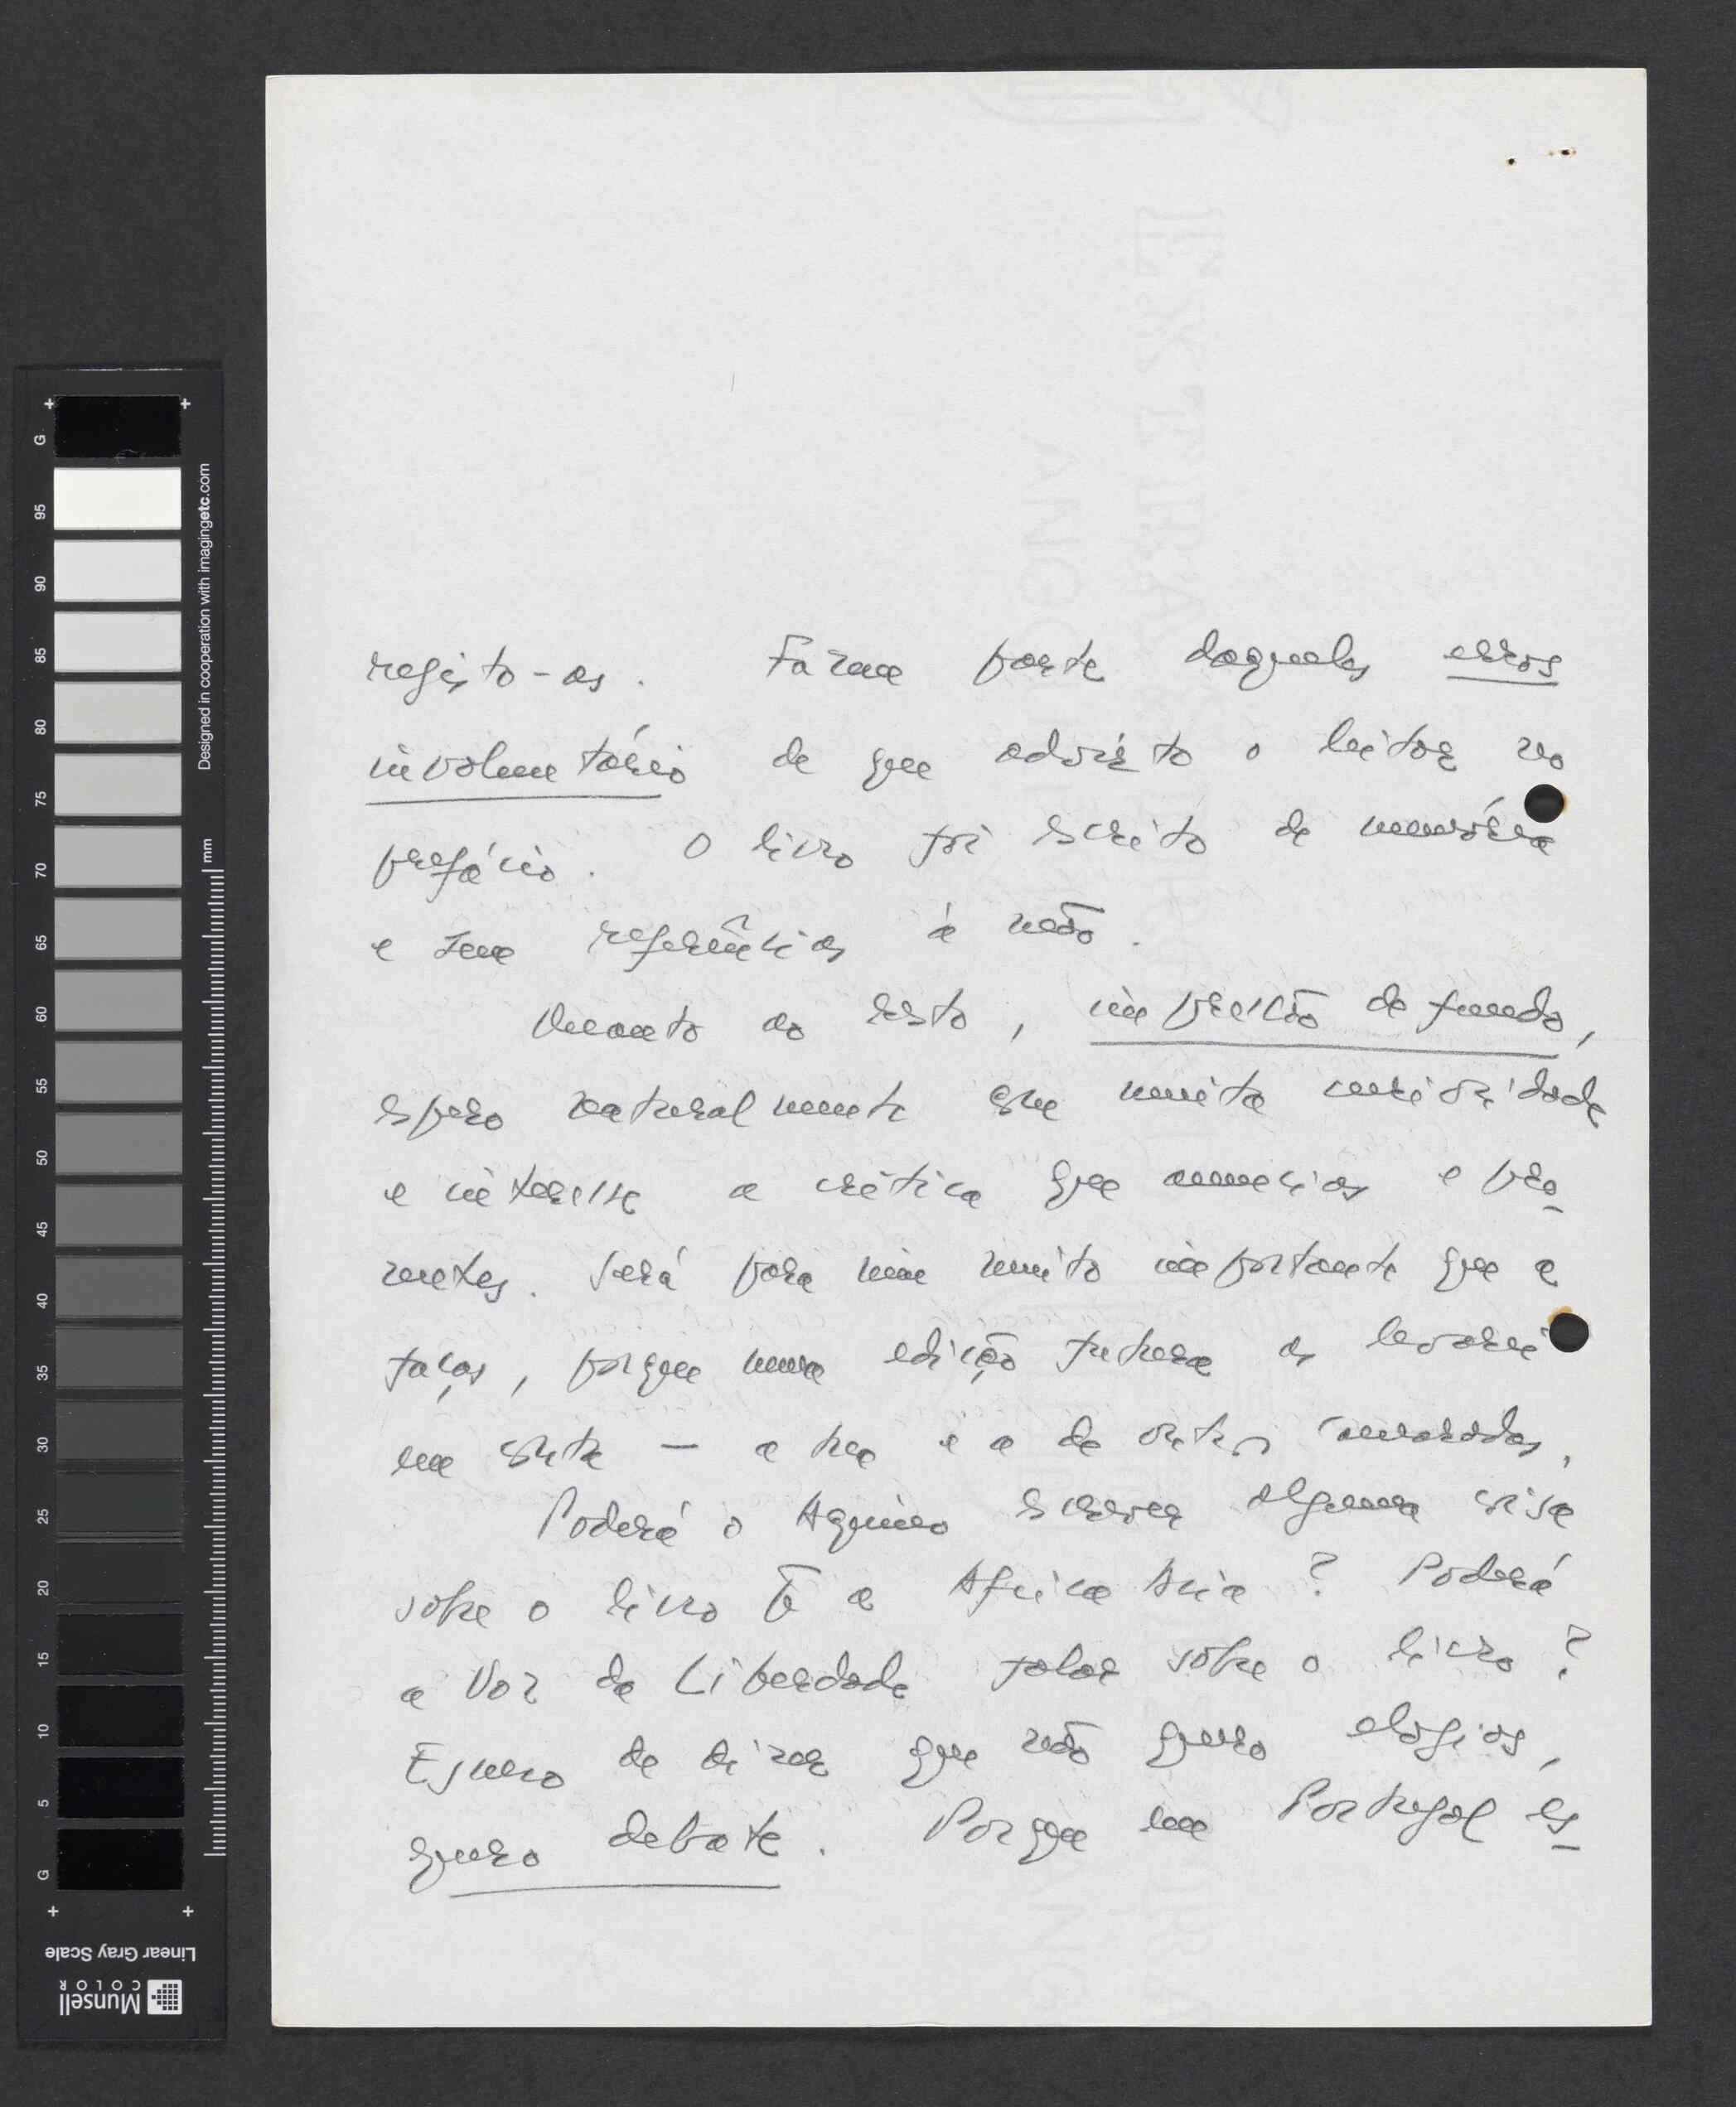 registo-as. Fazem parte daqueles erros
involuntários de que advirto o leitor no
prefácio. O livro foi escrito de memória
e sem referências à mão.
Quanto ao resto, impressão de fundo,
espero naturalmente com muita curiosidade
e interesse a crítica que anuncias e pro
metes. Será para mim muito importante que a
faças, porque numa edição futura as levarei
em conta — a tua e a de outros camaradas.
Poderá o Aquino escrever alguma coisa
sobre o livro a Africa Asia? Poderá
a Voz da Liberdade falar sobre o livro?
Escuso de dizer que não quero elogios,
quero debate. Porque em Portugal es
G 95 90 85 80 75 70 65 60 55 50 45 40 35 30 25 20 15 10 5 G
mm
Designed in cooperation with imagingetc.com
Linear Gray Scale
Munsell
COLOR